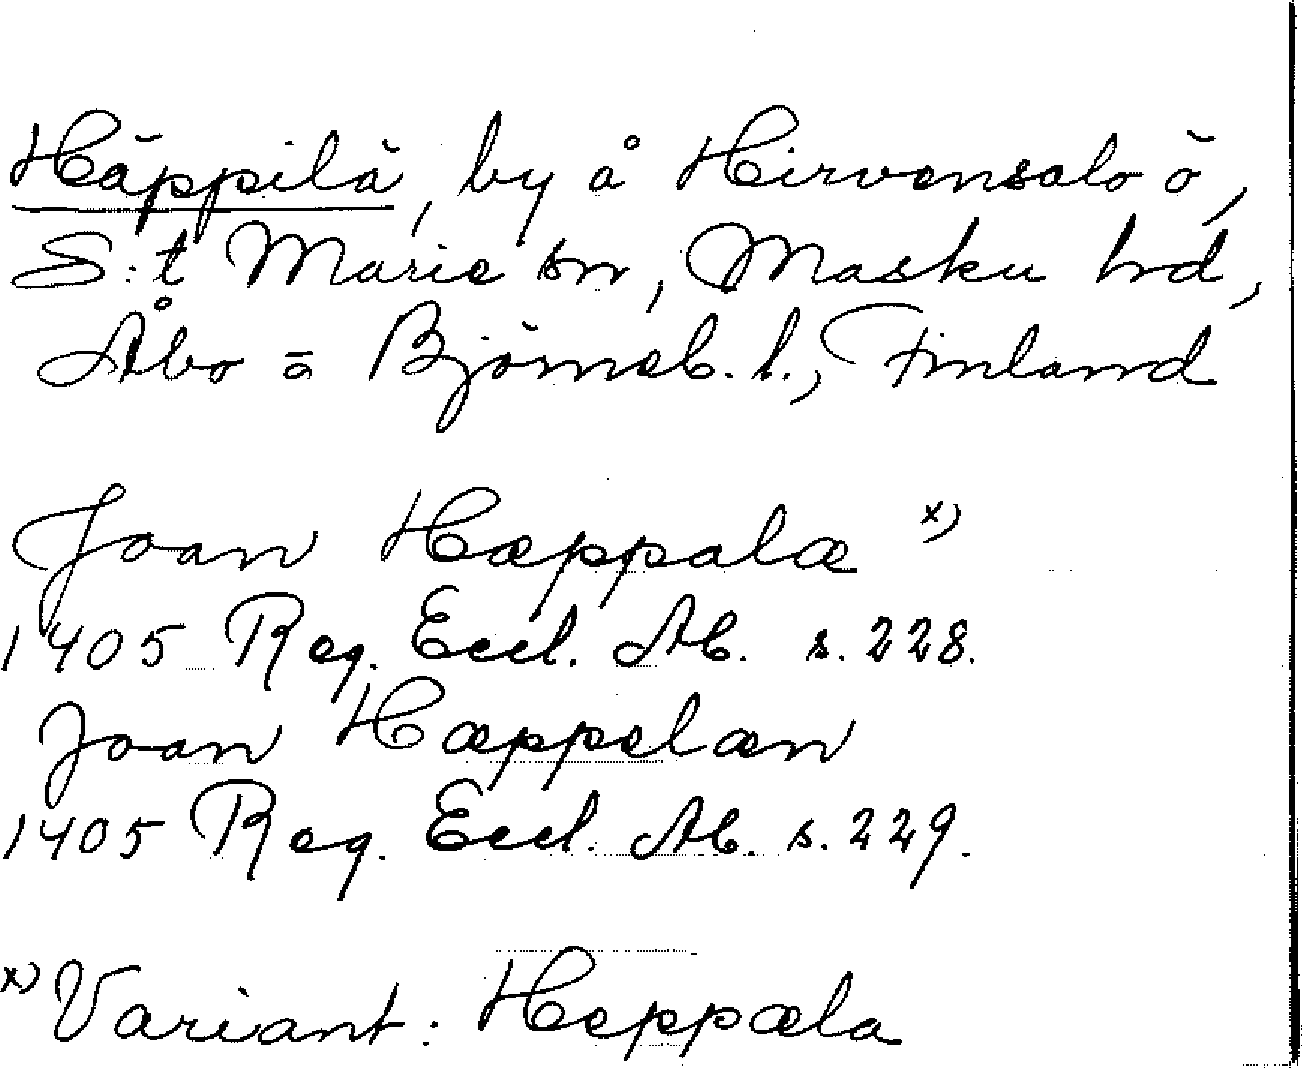 Häppilä, by å Hirvensalo ö,
S:t Marie sn, Masku hd,
Åbo = Björneb. l., Finland
Joan Hæppalæ x)
1405 Reg. Eccl. Ab. s. 228.
Joan Hæppelæn
1405 Reg. Eccl. Ab. s. 229.
x) Variant: Heppæla